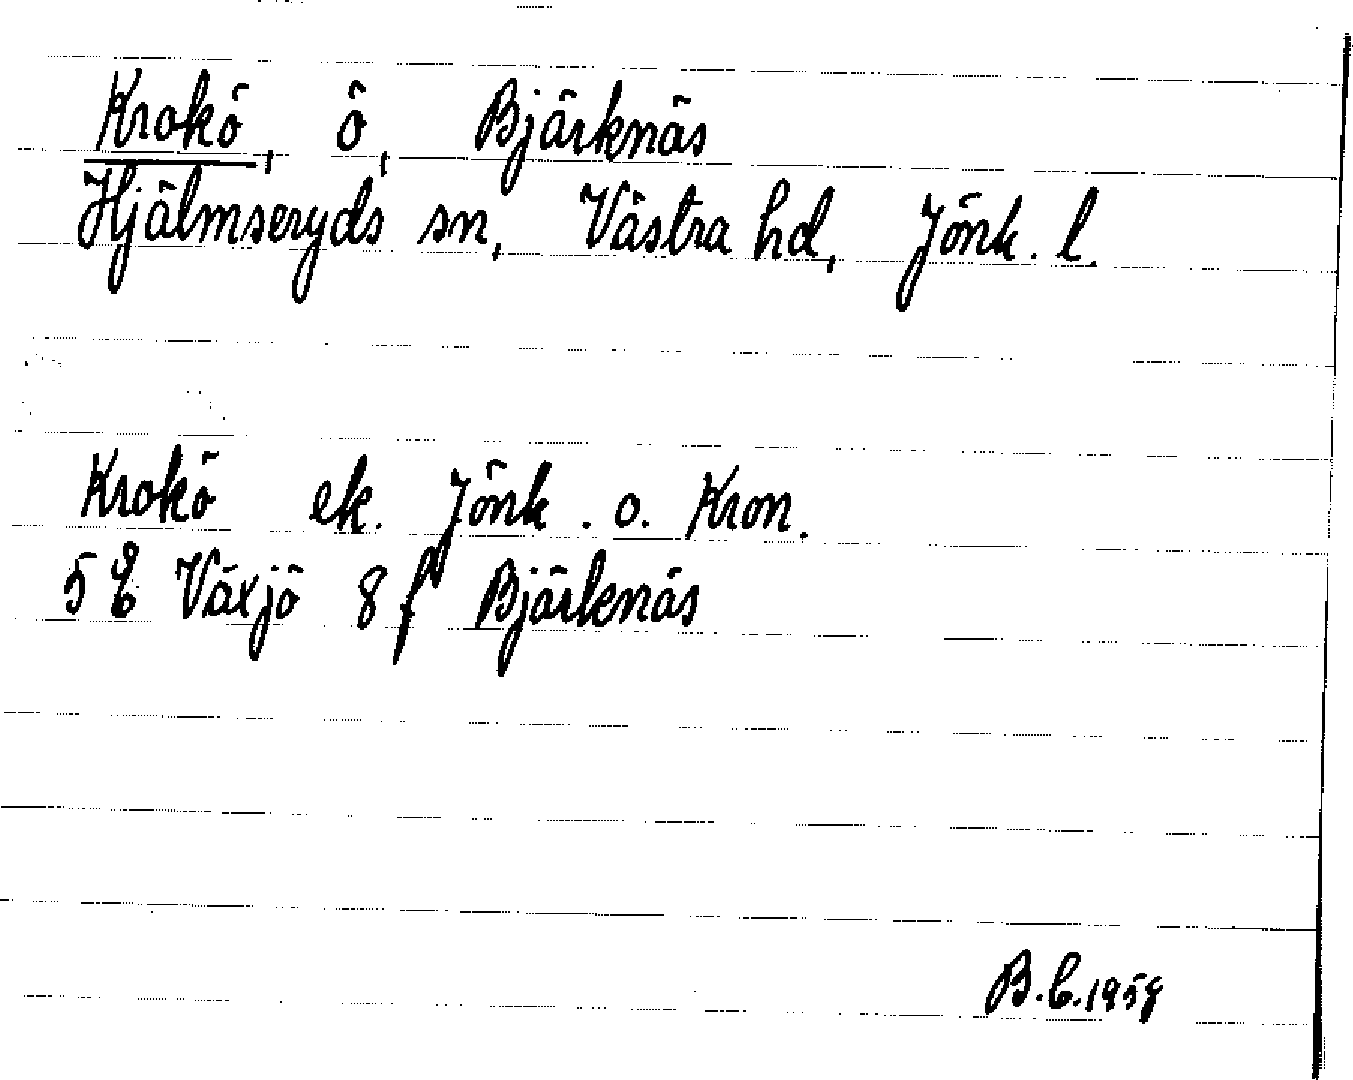 Krokö, ö, Bjärknäs
Hjälmseryds sn, Västra hd, Jönk. l.
Krokö ek. Jönk. o. Kron.
5 E Växjö 8 f Bjärknäs
B.b.1959